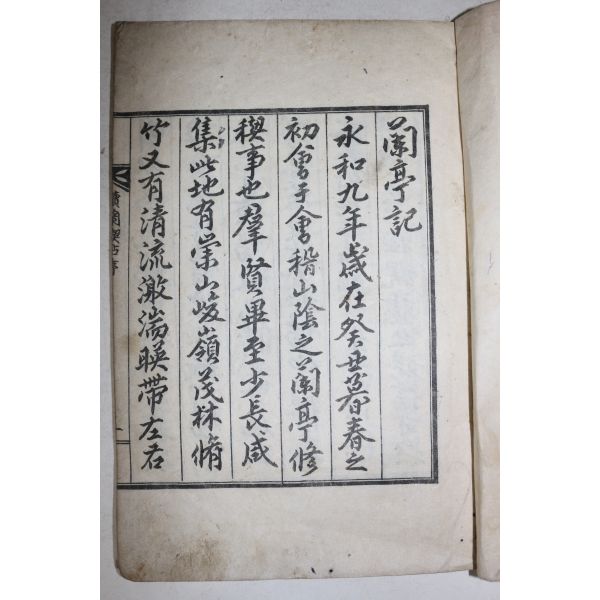 蘭亭記
永和九年歲在癸丑暮春之
初會于會稽山陰之蘭亭修
稧事也羣賢畢至少長咸
集此地有崇山峻嶺茂林脩
竹又有清流激湍暎帶左右